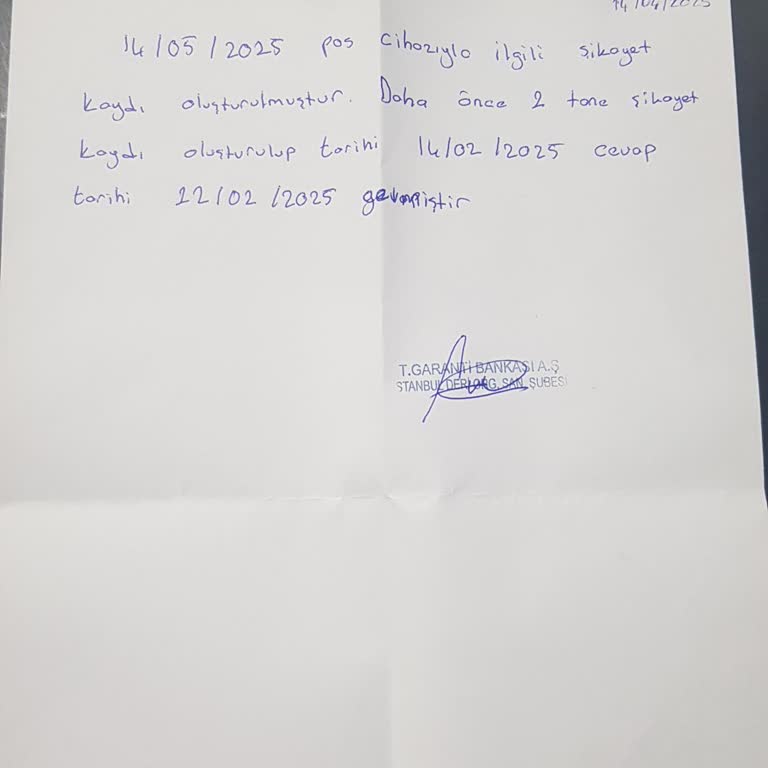 14/04/2025
14/05/2025 pos cihazıyla ilgili şikayet
kaydı oluşturulmuştur. Daha önce 2 tane şikayet
kaydı oluşturulup tarihi 14/02/2025 cevap
tarihi 22/02/2025
T.GARANTİ BANKASI A.Ş
STANBUL DERİ ORG. SAN. ŞUBESİ